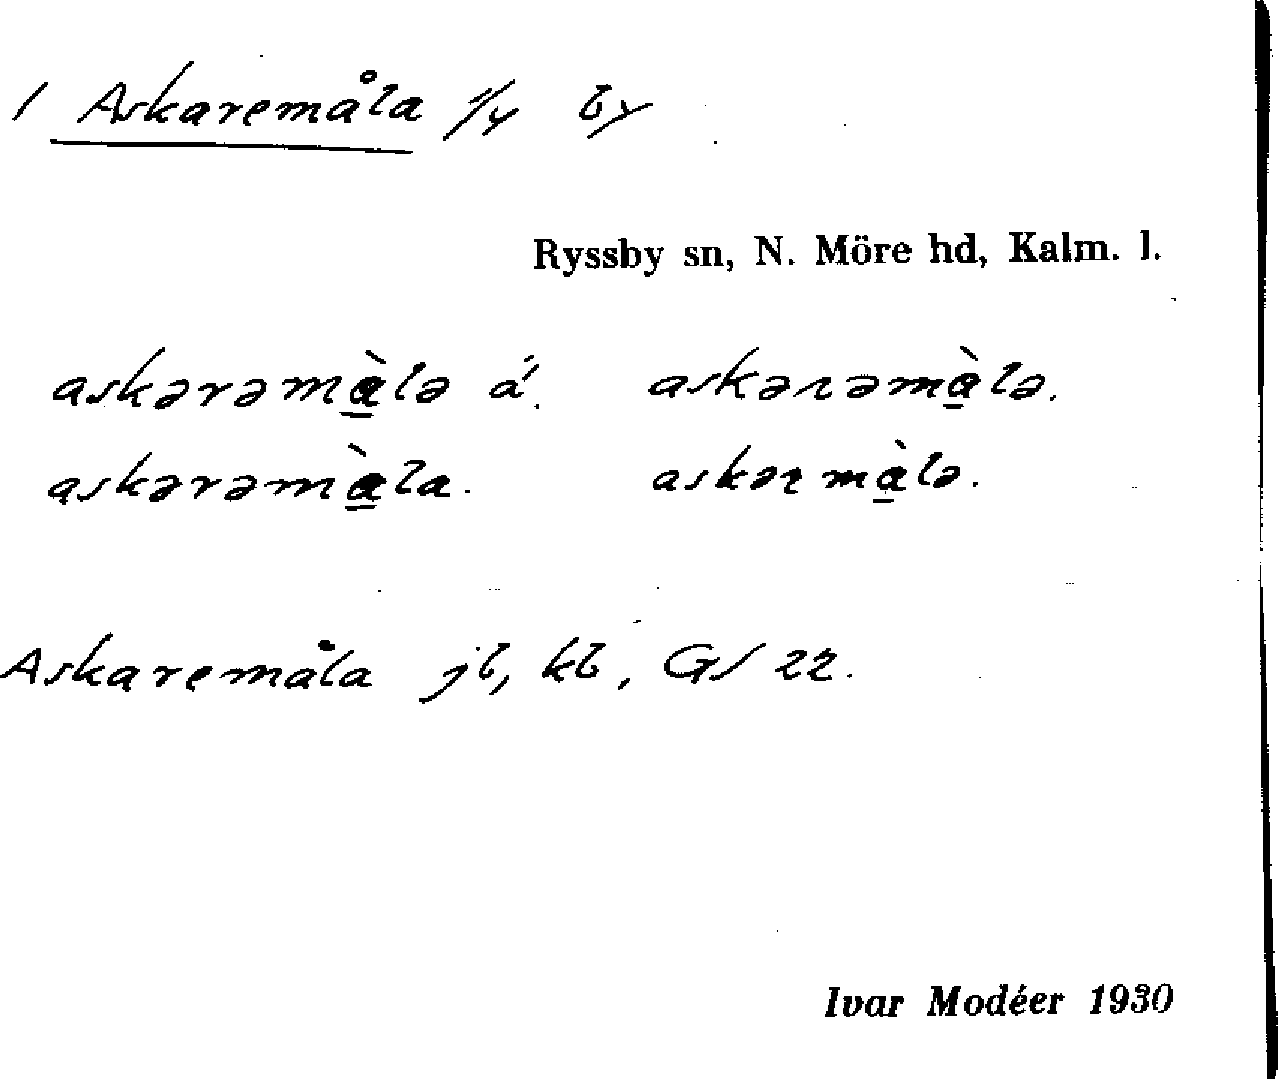 1 Askaremåla 1/4 by
Ryssby sn, N. Möre hd, Kalm. l.
askərəmàlə á. askərəmàlə.
askərəmàla. askərmàlə.
Askaremåla jb, kb, GS 22.
Ivar Modéer 1930